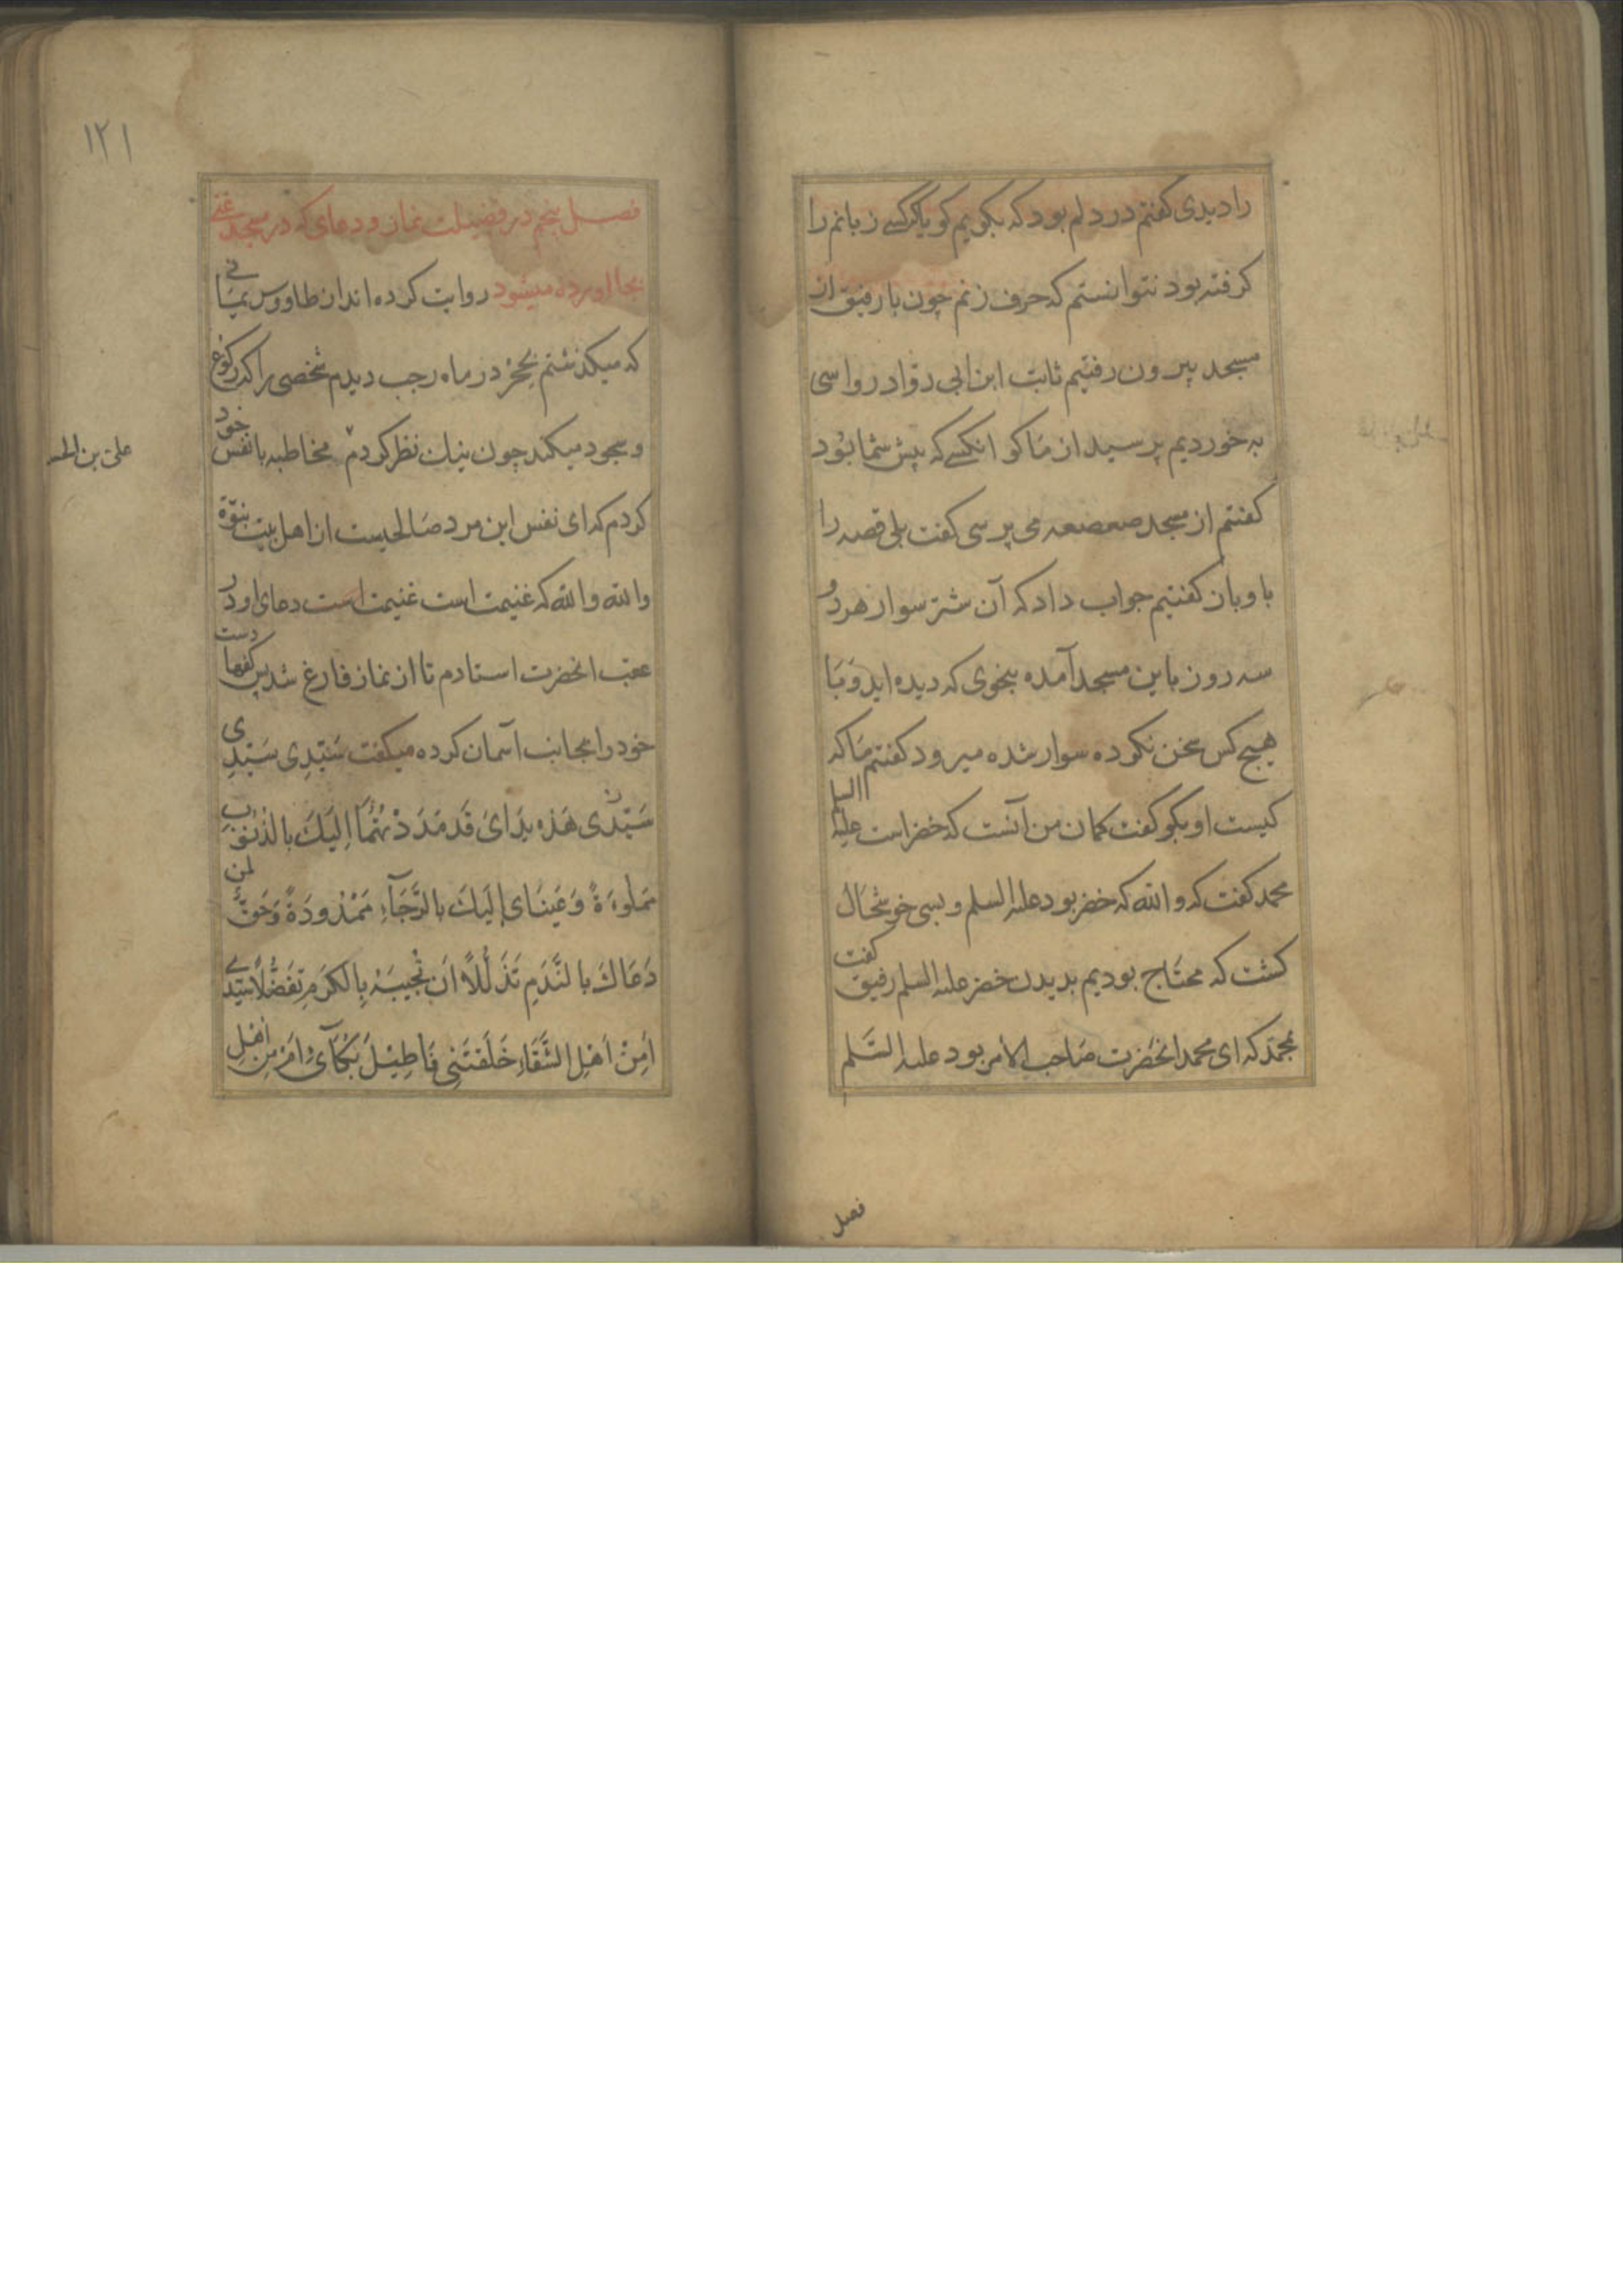 را دیدی کفتم در دلم بود که بکویم کویا کرکسے زبانم را
کرفته بود نتوانستم که حرف زنم چون با رفیق از
مسجد بیرون رفتیم ثابت ابن ابی رواد رواسی
به خوردیم پرسید از ما کو انکسے که پیش شما بود
کفتم از مسجد صعصعه می پرسی کفت بلی قصه را
با و بان کفتیم جواب داد که آن شتر سوار هر دو
سه روز باین مسجد آمده بنحوی که دیده اید و با
هیچ کس سخن نکرده سوار شده میرود کفتم ما که
کیست او بکو کفت کمان من آنست که خضر است علیه السلم
محمد کفت که والله که خضر بود علیه السلم و بسی خوشحال
کشت که محتاج بودیم بدیدن خضر علیه السلم رفیق کفت
بمحمد که ای محمد انحضرت صاحب الامر بود علیه السلم
فصل
۱۲۱
فصل پنجم در فضیلت نماز و دعای که در مسجد غنی
بجا اورده میشود روایت کرده اند از طاووس یمانے
که میکذشتم بحجر در ماه رجب دیدم شخصی را که رکوع
و سجود میکند چون نیک نظر کردم مخاطبه با نفس خود
کردم که ای نفس این مرد صالحیست از اهل بیت نبوة
والله والله که غنیمت است غنیمت است دعای او در
عقب انحضرت استادم تا از نماز فارغ شد پس کفها دست
خود را بجانب آسمان کرده میکفت سَیّدِی سَیّدِی
سَیّدی هَذه یدَایَ قَد مَدَدْتُهُمَا اِلَیكَ بالذنوب
مَملُوءَةً وَعَینَای اِلَیكَ بالرَّجَآءِ مَمْدُودَةً وَحَقٌّ لمن
دَعَاكَ بالنَّدَمِ تَذَلُّلاً اَن تُجیبَهُ بِالکَرَمِ تَفَضُّلاً سَیّدے
اَمِنْ اَهْلِ الشَّقَاءِ خَلَقتَنِی فَاُطِیْلَ بُکَآئی اَمْ مِن اَهْلِ
علی بن الحـ